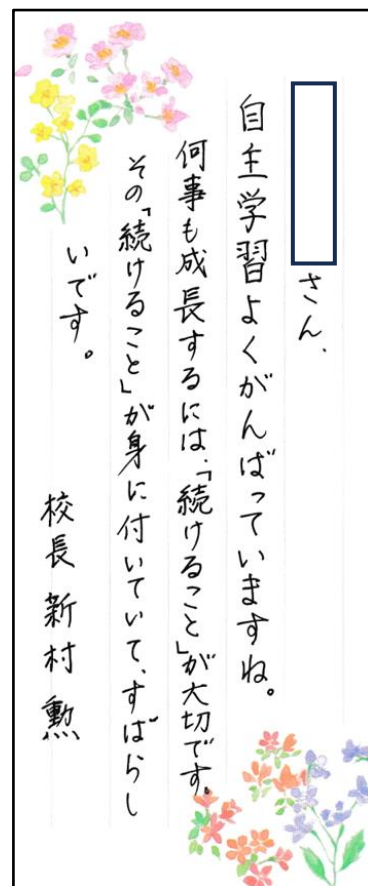 さん、
自主学習よくがんばっていますね。
何事も成長するには、「続けること」が大切です。
その「続けること」が身に付いていて、すばらし
いです。
校長 新村 勲